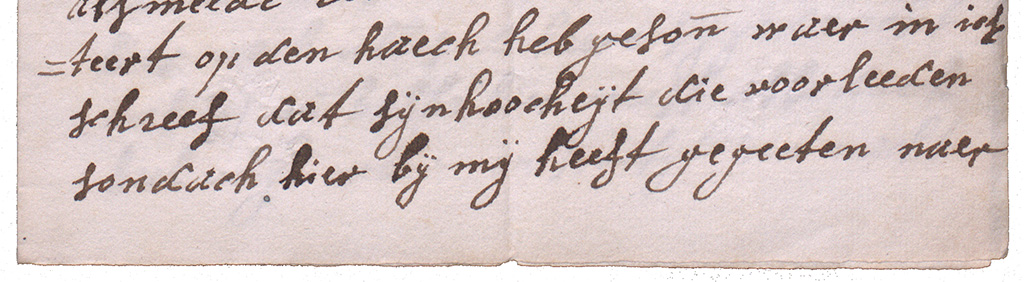 =teert op den haech heb geson̄ waer in ick
schreef dat sijn hoocheijt die voorleeden
sondach hier bij mij heeft gegeeten naer